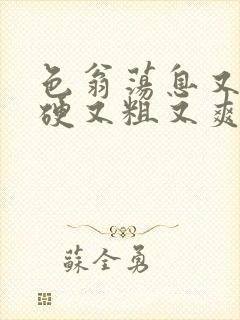 色翁荡息又
硬又粗又爽
蘇全勇